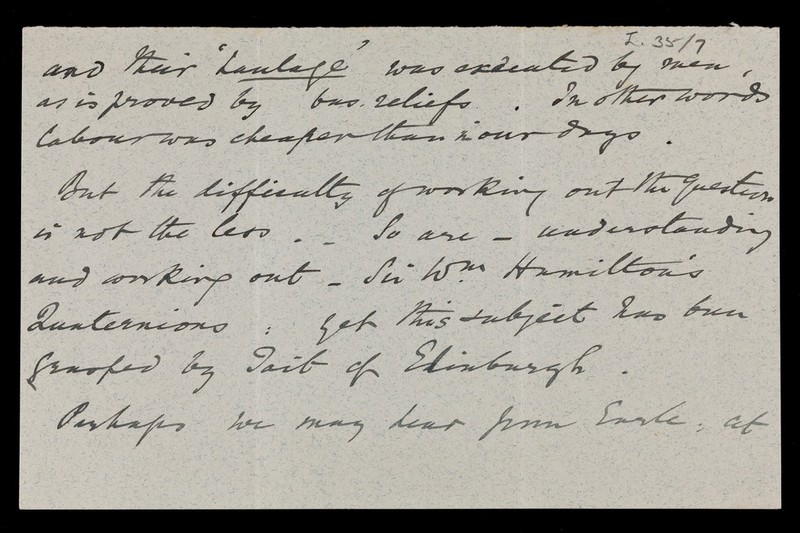 I. 35/7
and their "haulage" was executed by men,
as is proved by bas. reliefs. In other words
labour was cheaper than in our days.
But the difficulty of working out the Question
is not the less. - So are - understanding
and working out - Sir Wm. Hamilton's
Quaternions: yet this subject has been
grasped by Tait of Edinburgh.
Perhaps we may hear from Earle, at